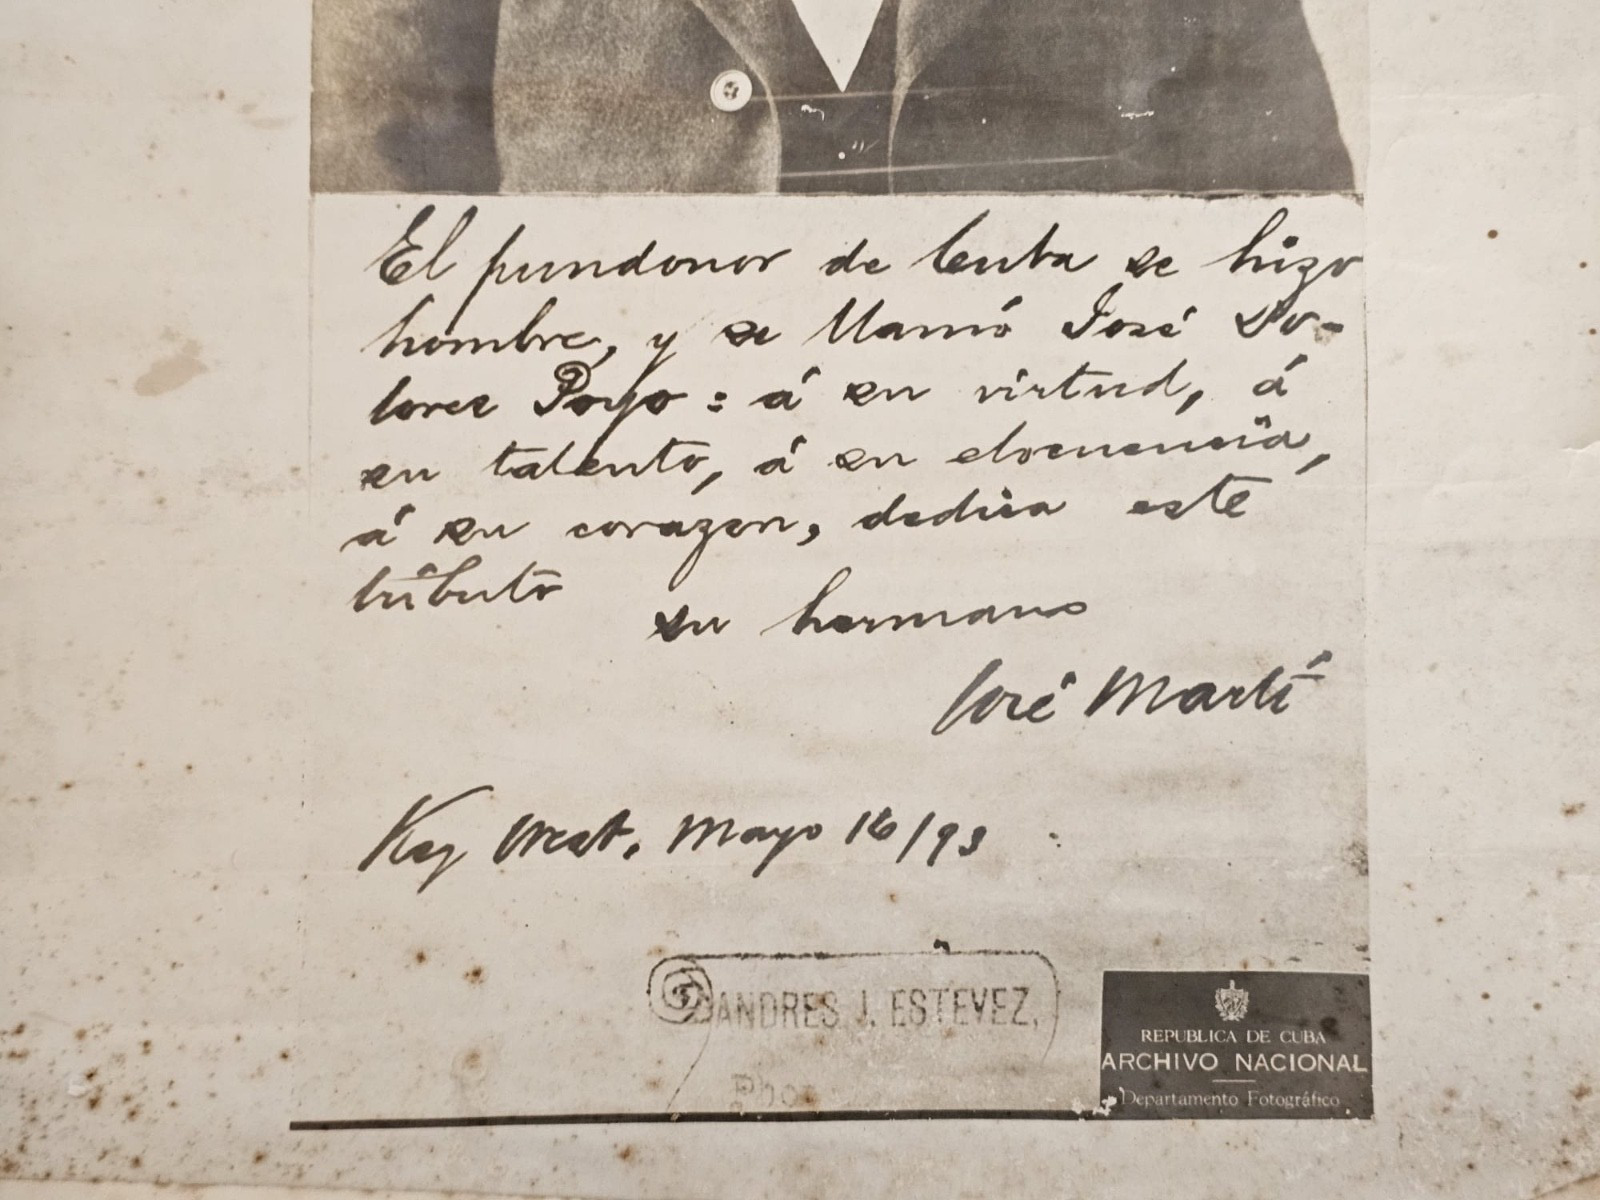 El pundonor de Cuba se hizo
hombre, y se llamó José Do-
lores Poyo: á su virtud, á
su talento, á su elocuencia,
á su corazon, dedica este
tributo
su hermano
José Martí
Key West, Mayo 16/93
ANDRES J. ESTEVEZ,
REPUBLICA DE CUBA
ARCHIVO NACIONAL
Departamento Fotográfico